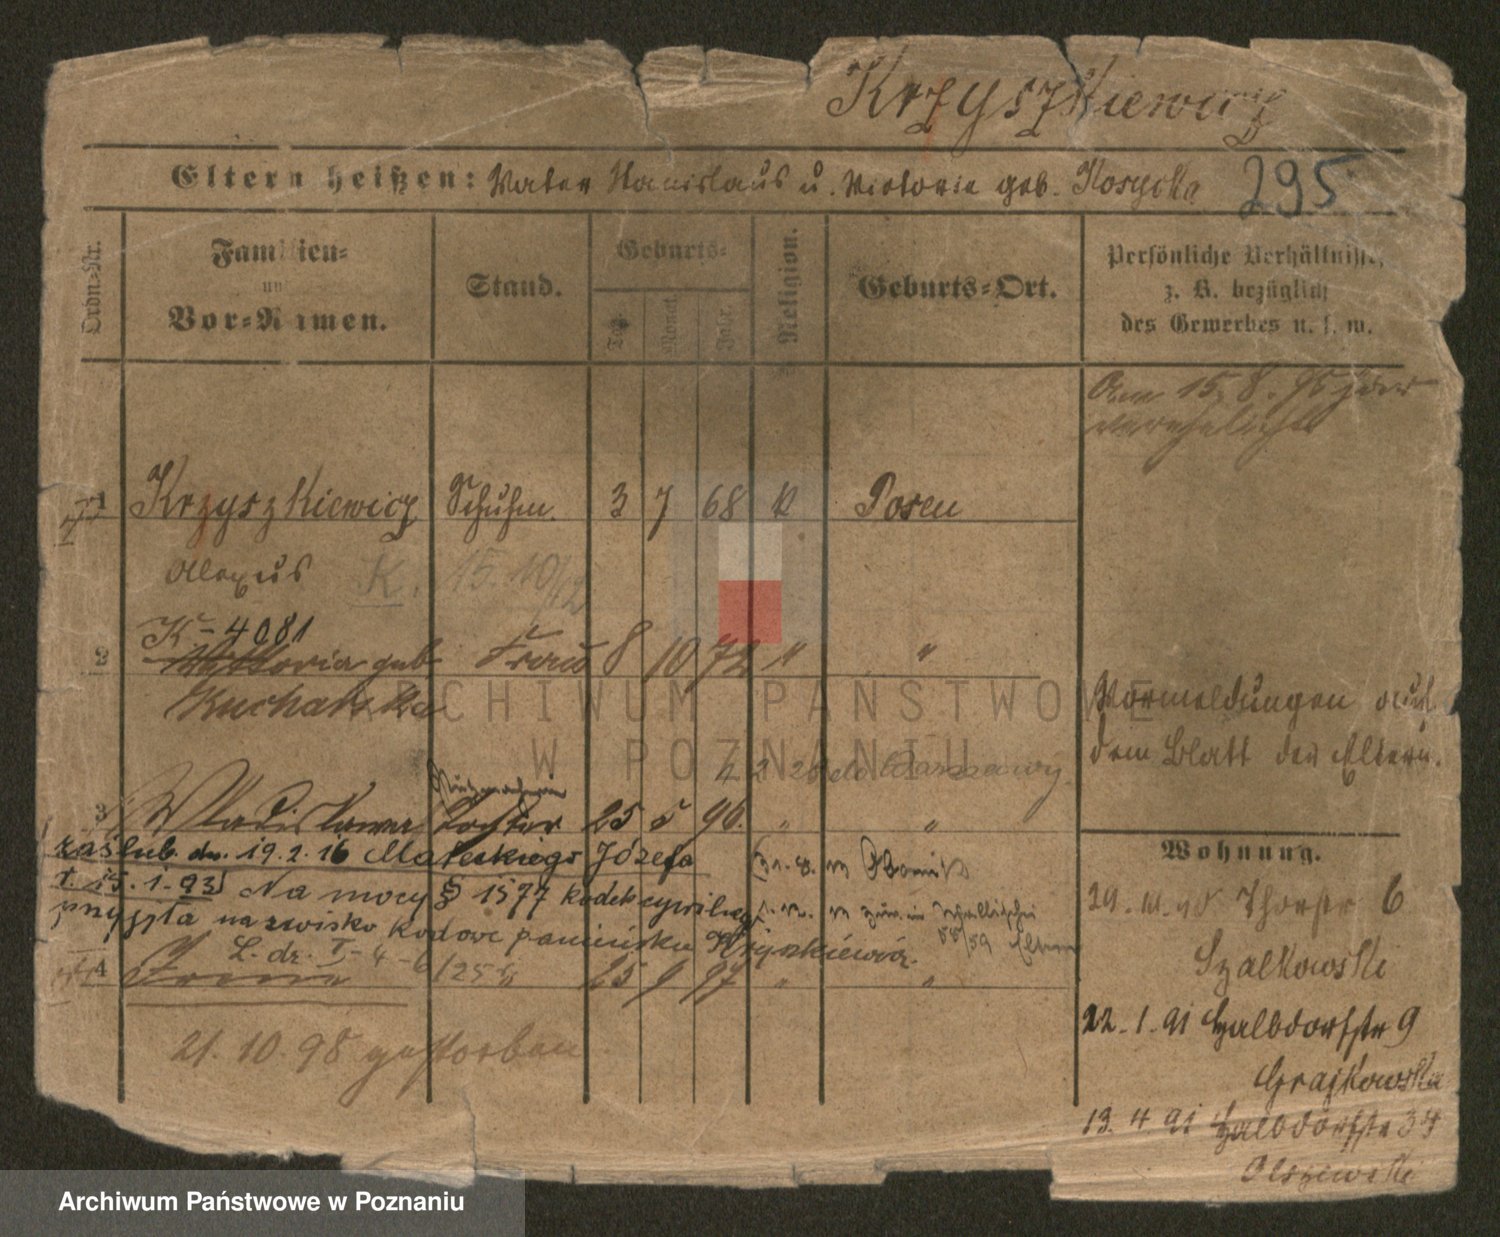 Krzyszkiewicz
Eltern heißen: Vater Stanislaus u. Victoria geb. Kosycka 295
Ordn-Nr.
Familien-
und
Vor-Namen.
Stand.
Geburts-
Tag.
Monat.
Jahr.
Religion.
Geburts-Ort.
Persönliche Verhältnisse,
z. B. bezüglich
des Gewerbes u. s. w.
Am 15. 8. 95
verehelicht
1 Krzyszkiewicz Schuhm. 3 7 68 K Posen
Alexus K. 15. 10/12
K-4081
2 Viktoria geb. Frau 8 10 72 " "
Kucharska
Vormeldungen auf
dem Blatt der Eltern.
Warszawy
3 Wladislawa Tochter 25 5 96. " "
zaślub. dn. 19. 2. 16 Małeckiego Józefa
† 15. 1. 93 Na mocy § 1577 kodek cywilnego
przyjęła nazwisko rodowe panieńskie Krzyszkiewicz.
L. dz. I-4-6/25
4 Irene 25 9 97 " "
21. 10. 98 gestorben
Wohnung.
Thorstr 6
Szalkowski
22. 1. 91 Halbdorfstr 9
Grajkowska
13. 4 91 Halbdorfstr 34
Olszewski
ARCHIWUM PAŃSTWOWE
W POZNANIU
Archiwum Państwowe w Poznaniu